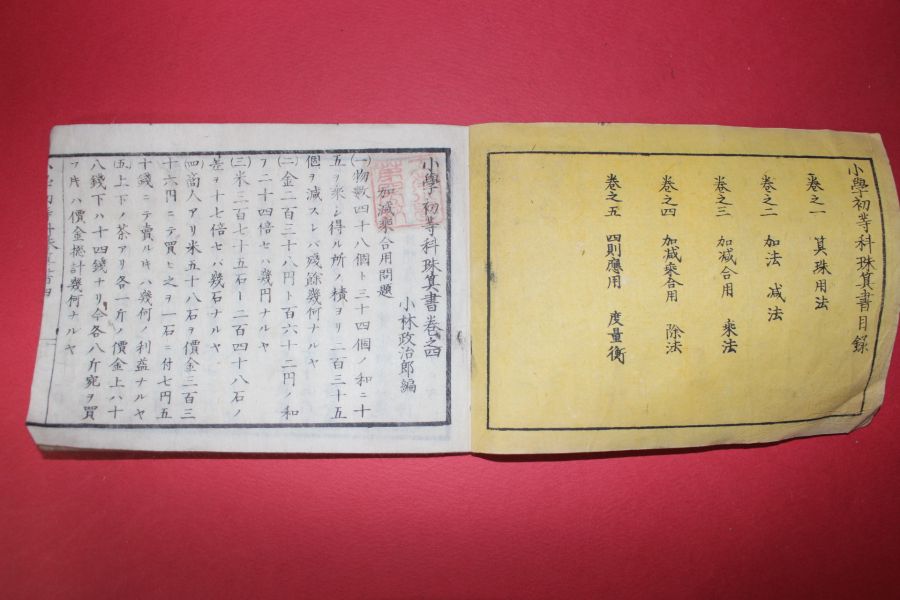 小學初等科珠算書目錄
卷之一 算珠用法
卷之二 加法 減法
卷之三 加減合用 乘法
卷之四 加減乘合用 除法
卷之五 四則應用 度量衡
小學初等科珠算書卷之四
小林政治郎編
加減乘合用問題
㈠物數四十八個ト三十四個ノ和ニ十
五ヲ乘シ得ル所ノ積ヨリ二百三十五
個ヲ減スレバ殘餘幾何ナルヤ
㈡金二百三十八円ト百六十二円ノ和
ヲ二十四倍セハ幾円ナルヤ
㈢米三百七十五石ト二百四十八石ノ
差ヲ十七倍セバ幾石ナルヤ
㈣商人アリ米五十八石ヲ價金三百三
十六円ニテ買ヒ之ヲ一石ニ付七円五
十錢ニテ賣ル片ハ幾何ノ利益ナルヤ
㈤上下ノ茶アリ各一斤ノ價金上ハ十
八錢下ハ十四錢ナリ今各八斤宛ヲ買
フ片ハ價金總計幾何ナルヤ